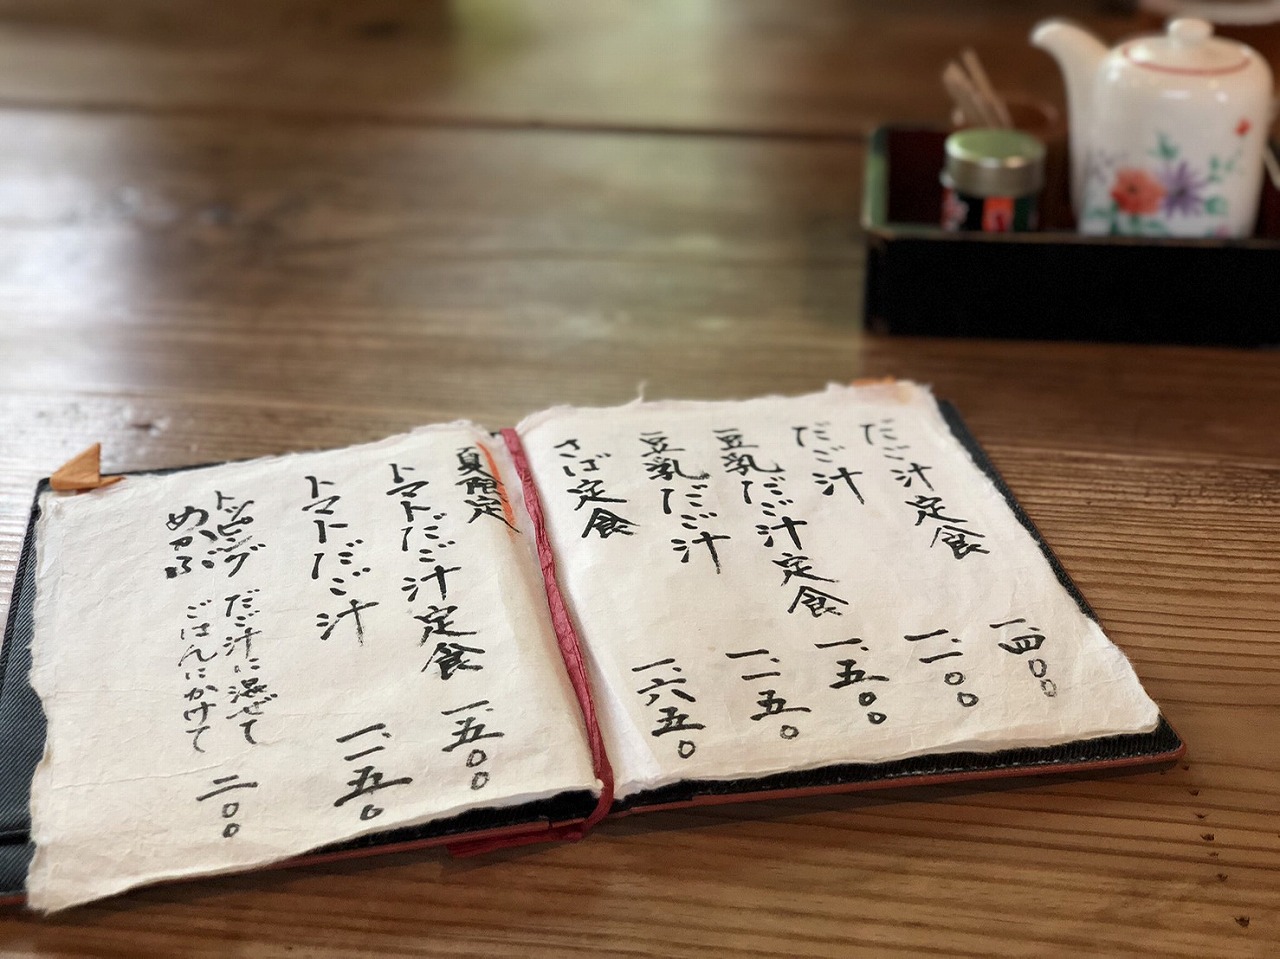 だご汁定食 一、四〇〇
だご汁 一、一〇〇
豆乳だご汁定食 一、五〇〇
豆乳だご汁 一、一五〇
さば定食 一、六五〇
夏限定
トマトだご汁定食 一、五〇〇
トマトだご汁 一、一五〇
トッピング だご汁に混ぜて
めかぶ ごはんにかけて 二〇〇